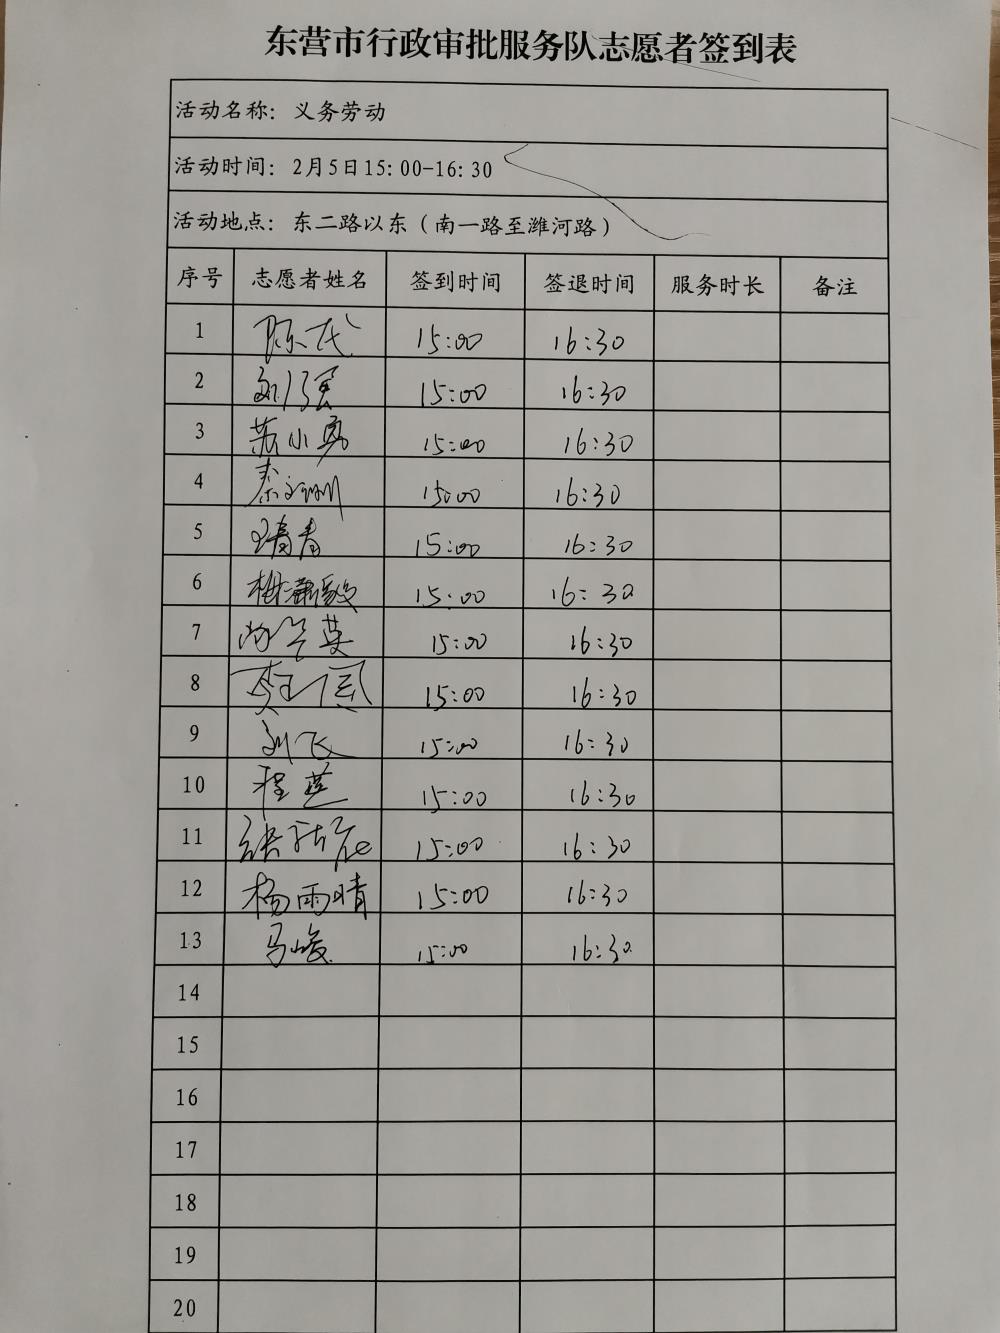 东营市行政审批服务队志愿者签到表
活动名称：义务劳动
活动时间：2月5日15：00-16：30
活动地点：东二路以东（南一路至潍河路）
序号 志愿者姓名 签到时间 签退时间 服务时长 备注
1 15:00 16:30
2 15:00 16:30
3 苏小勇 15:00 16:30
4 15:00 16:30
5 15:00 16:30
6 15:00 16:30
7 15:00 16:30
8 15:00 16:30
9 刘飞 15:00 16:30
10 程燕 15:00 16:30
11 15:00 16:30
12 杨雨晴 15:00 16:30
13 马峻 15:00 16:30
14
15
16
17
18
19
20